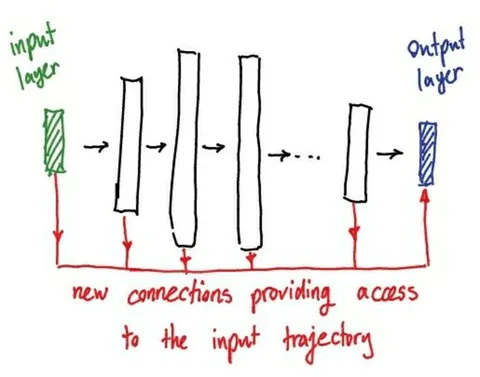 input
layer
output
layer
new connections providing access
to the input trajectory